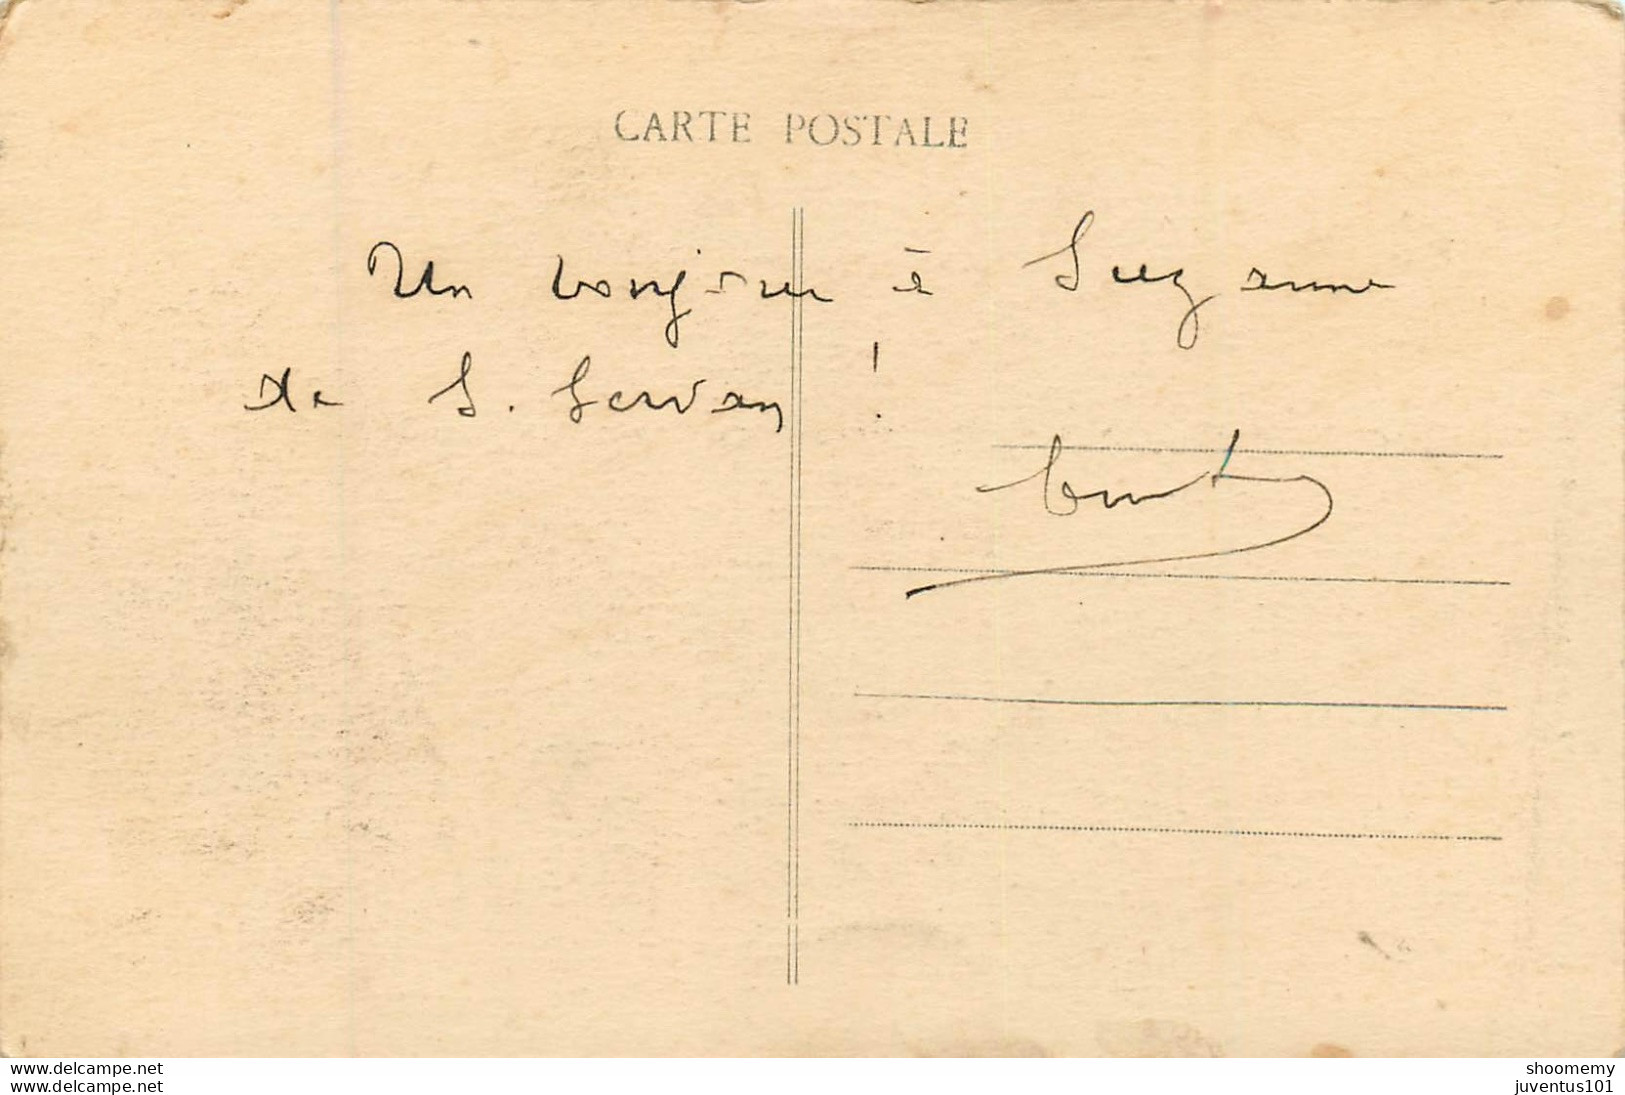 CARTE POSTALE
Un bonjour à Suzanne
de S. Servan !
www.delcampe.net
www.delcampe.net
shoomemy
juventus101